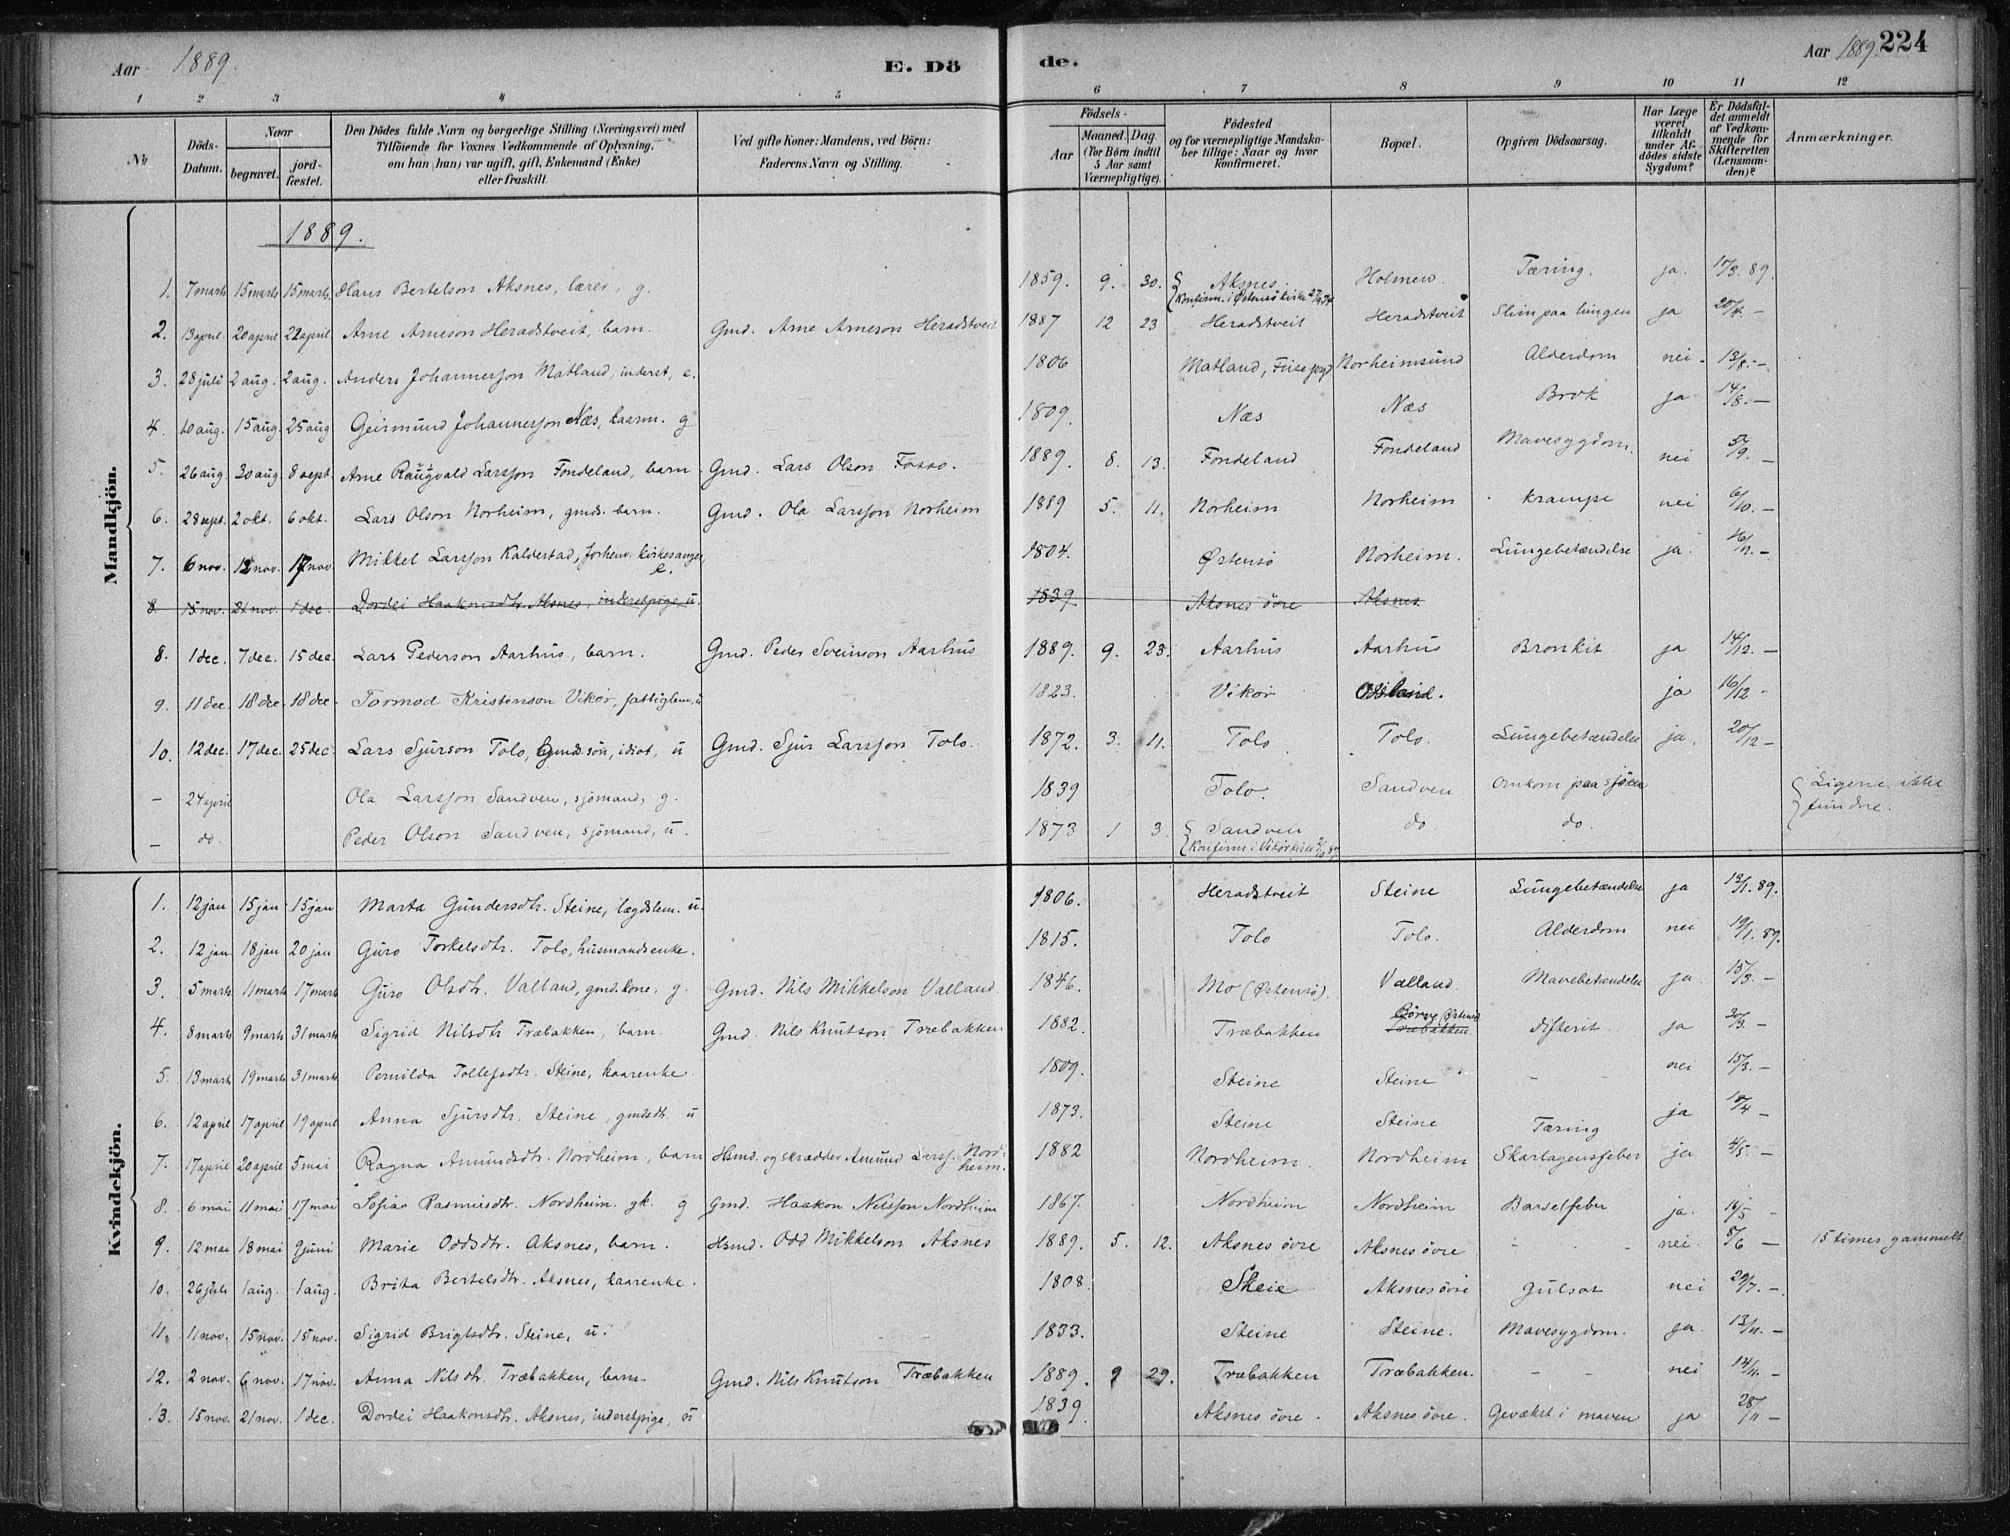 Aar 1889. E. Dö de. Aar 1889. 224
1 2 3 4 5 6 7 8 9 10 11 12
No. Döds-Datum. Naar begravet. jord-fæstet. Den Dödes fulde Navn og borgerlige Stilling (Næringsvei) med Tilföiende for Voxnes Vedkommende af Oplysning, om han (hun) var ugift, gift, Enkemand (Enke) eller fraskilt. Ved gifte Koner: Mandens, ved Börn: Faderens Navn og Stilling. Födsels- Aar Maaned. Dag. (For Börn indtil 5 Aar samt Værnepligtige). Födested og for værnepligtige Mandskaber tillige: Naar og hvor konfirmeret. Bopæl. Opgiven Dödsaarsag. Har Læge været tilkaldt under Afdödes sidste Sygdom? Er Dödsfaldet anmeldt af Vedkommende for Skifteretten (Lensmanden)? Anmærkninger.
Mandkjön.
1889.
1. 7 marts 15 marts 15 marts Hans Bertelson Aksnes, lærer, g. 1859. 9. 30. Aksnes. Holmen. Tæring. ja. 17/3. 89.
Konfirm. i Østensö kirke 27/9 74
2. 13 april. 20 april 22 april Arne Arneson Heradstveit, barn. Gmd. Arne Arneson Heradstveit 1887 12 23 Heradstveit Heradstveit Slim paa lungen ja 20/4. —
3. 28 juli 2 aug. 2 aug. Anders Johannesson Matland, inderst, e. 1806 Matland, Fuse pgd Norheimsund Alderdom nei 13/8. —
4. 10 aug. 15 aug. 25 aug Geirmund Johannesson Næs, kaarm. g 1809. Næs Næs Brok ja 14/8. —
5. 26 aug. 30 aug. 8 sept. Arne Raugvald Larsson Fondeland, barn. Gmd. Lars Olson Fosso. 1889. 8. 13. Fondeland Fondeland Mavesygdom. nei 5/9. —
6. 28 sept. 2 okt. 6 okt. Lars Olson Norheim, gmds. barn. Gmd. Ola Larsson Norheim 1889 5. 11. Norheim Norheim krampe nei 6/10. —
7. 6 nov. 12 nov. 17 nov Mikkel Larsson Kaldestad, forhenv. kirkesanger, e. 1804. Østensö Norheim. Lungebetændelse ja. 16/11. —
8. 15 nov. 21 nov. 1 dec. Dordei Haakonsdtr. Aksnes, inderstpige, u. 1839. Aksnes övre Aksnes
8. 1 dec. 7 dec. 15 dec. Lars Pederson Aarhus, barn. Gmd. Peder Sveinson Aarhus 1889. 9. 23. Aarhus Aarhus Bronkit ja 14/12. —
9. 11 dec. 18 dec. 18 dec. Tormod Kristenson Vikör, fattiglem, u 1823. Vikör ja 16/12 -
10. 12 dec. 17 dec. 25 dec. Lars Sjurson Tolo, Gmds. sön, idiot, u Gmd. Sjur Larsson Tolo. 1872. 3. 11. Tolo Tolo. Lungebetændelse ja. 20/12 —
— 24 april Ola Larsson Sandven, sjömand, g. 1839 Tolo. Sandven Omkom paa sjöen Ligene ikke fundne.
— do. Peder Olson Sandven, sjömand, u. 1873 1 3. Sandven do. do.
Konfirm i Vikör kirke
Kvindekjön.
1. 12 jan 15 jan 15 jan Marta Gundersdtr. Steine, lægdslem. u. 1806. Heradstveit Steine Lungebetændelse ja 18/1. 89.
2. 12 jan 18 jan 20 jan Guro Torkelsdtr. Tolo, husmandsenke. 1815. Tolo Tolo. Alderdom nei 19/1. 89.
3. 5 marts 11 marts 17 marts Guro Olsdtr. Valland, gmd. kone, g. Gmd. Nils Mikkelson Valland. 1846. Mo (Østensö). Valland. Mavebetændelse ja. 15/3. —
4. 8 marts 9 marts 31 marts Sigrid Nilsdtr Træbakken, barn. Gmd. Nils Knutson Træbakken 1882. Træbakken Börve (Østensö Træbakken difterit ja 30/3. —
5. 13 marts 19 marts 31 marts Pernilda Tollefsdtr. Steine, kaarenke. 1809. Steine Steine - - nei 15/3. —
6. 12 april 17 april 19 april Anna Sjursdtr. Steine, gmdsdtr. u 1873. Steine Steine Tæring ja 18/4 —
7. 17 april 20 april 5 mai Ragna Amundsdtr. Nordheim, barn Hsmd. og skrædder Amund Larss. Nordheim. 1882 Nordheim. Nordheim Skarlagensfeber ja 4/5. —
8. 6 mai 11 mai 17 mai Sofia Rasmusdtr. Nordheim. gk. g Gmd. Haakon Nilsson Nordheim 1867. Nordheim Nordheim Barselfeber ja. 16/5 -
9. 12 mai 18 mai 9 juni Marie Oddsdtr. Aksnes, barn. Hsmd. Odd Mikkelson Aksnes 1889. 5. 12. Aksnes övre Aksnes övre - - nei 8/6 — 15 timer gammelt.
10. 26 juli 1 aug. 1 aug. Brita Bertelsdtr. Aksnes, kaarenke. 1808. Skeie Aksnes övre Gulsot nei 29/7. —
11. 11 nov. 15 nov. 15 nov. Sigrid Brigtsdtr. Steine, u. 1833. Steine Steine. Mavesygdom. ja. 13/11. —
12. 2 nov. 6 nov. 17 nov. Anna Nilsdtr. Træbakken, barn. Gmd. Nils Knutson Træbakken 1889. 9 29. Træbakken Træbakken. - - nei 14/11. —
13. 15 nov. 21 nov. 1 dec. Dordei Haakonsdtr. Aksnes, inderstpige, u 1839. Aksnes övre. Aksnes övre. Gevækst i maven ja 28/11 —